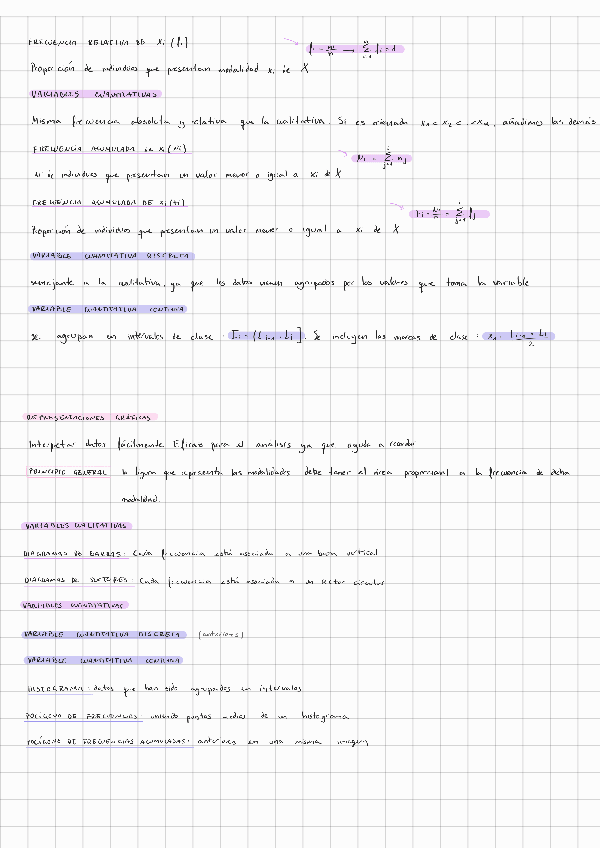 FRECUENCIA RELATIVA DE xi (fi) → fi = ni/n → Σ fi = 1
Proporción de individuos que presentan modalidad xi de X
VARIABLES CUANTITATIVAS
Misma frecuencia absoluta y relativa que la cualitativa. Si es ordenada x1 < x2 < .. < xk, añadimos las demás
FRECUENCIA ACUMULADA de xi (Ni) → Ni = Σ nj
nº de individuos que presentan un valor menor o igual a xi de X
FRECUENCIA ACUMULADA DE xi (Fi) → Fi = Ni/n = Σ fj
Proporción de individuos que presentan un valor menor o igual a xi de X
VARIABLE CUANTITATIVA DISCRETA
semejante a la cualitativa, ya que los datos vienen agrupados por los valores que toma la variable
VARIABLE CUANTITATIVA CONTINUA
se agrupan en intervalos de clase : Ii = (Li-1, Li]. Se incluyen las marcas de clase : xi = Li-1 + Li / 2
REPRESENTACIONES GRÁFICAS
Interpretar datos fácilmente Eficaz para el analisis ya que ayuda a recordar
PRINCIPIO GENERAL la figura que representa las modalidades debe tener el área proporcional a la frecuencia de dicha
modalidad.
VARIABLES CUALITATIVAS
DIAGRAMAS DE BARRAS: Cada frecuencia está asociada a una barra vertical
DIAGRAMAS DE SECTORES: Cada frecuencia está asociada a un sector circular
VARIABLES CUANTITATIVAS
VARIABLE CUANTITATIVA DISCRETA (anteriores)
VARIABLE CUANTITATIVA CONTINUA
HISTOGRAMA: datos que han sido agrupados en intervalos
POLÍGONO DE FRECUENCIAS uniendo puntos medios de un histograma
POLÍGONO DE FRECUENCIAS ACUMULADAS: anteriores en una misma imagen